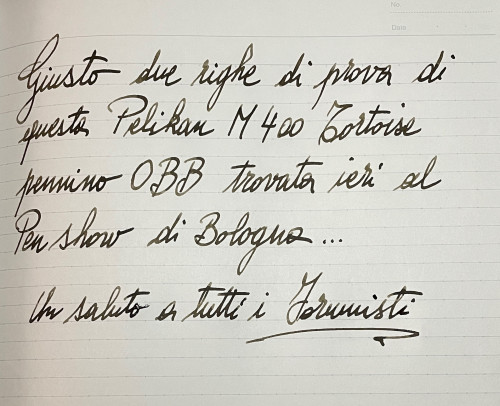 No.
Date
Giusto due righe di prova di
questa Pelikan M400 Tortoise
pennino OBB trovata ieri al
Pen show di Bologna...
Un saluto a tutti i Forumisti